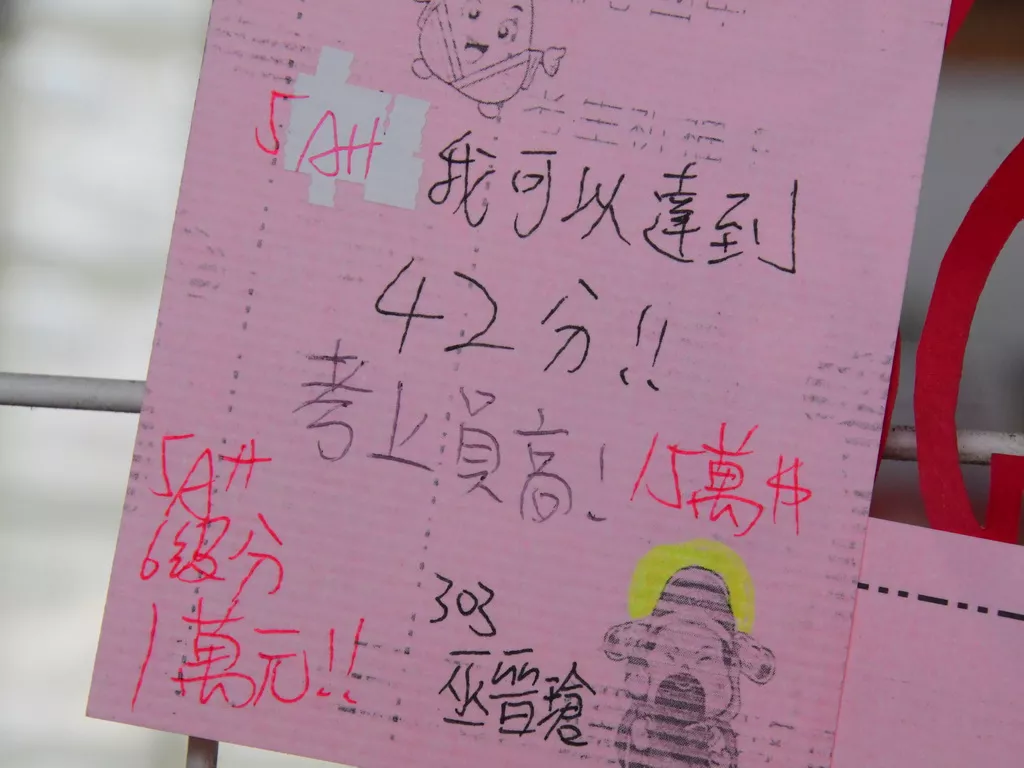 5A++
我可以達到
42分!!
考上員高!
15萬$
5A++
6級分
1萬元!!
303
巫晉瑲